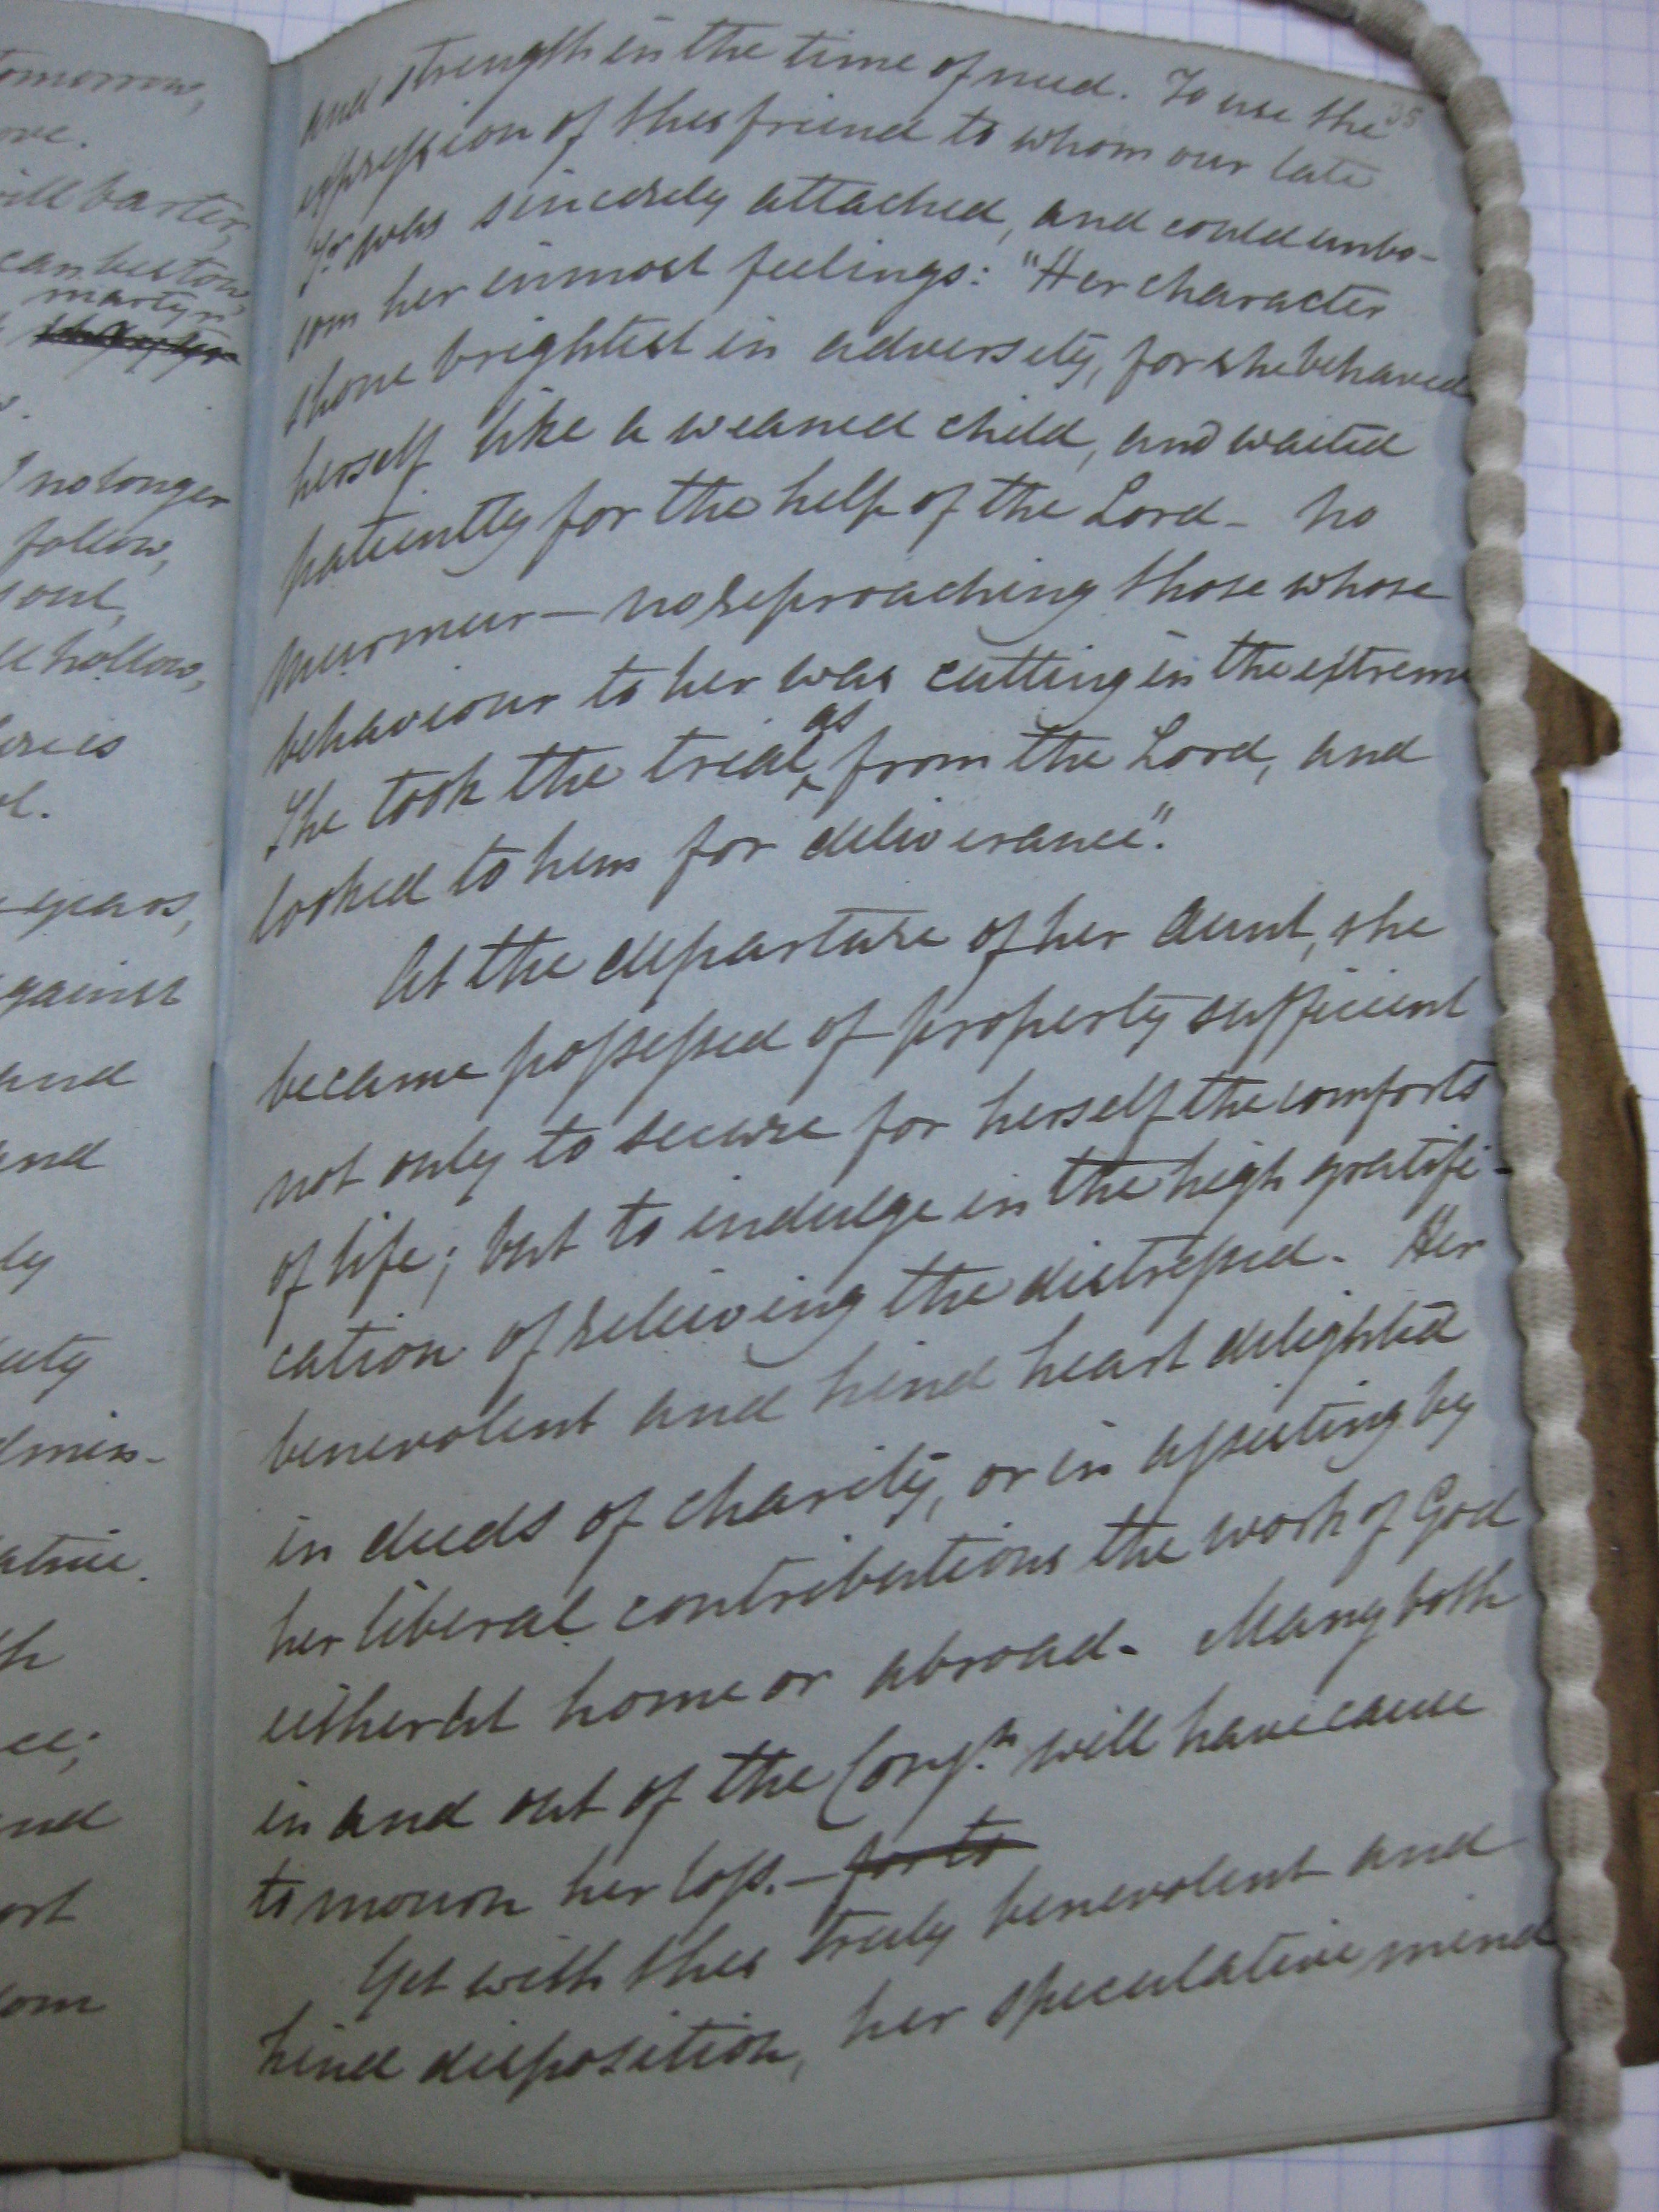 tomorrow,
ove.
ill barter,
can bestow,
martyr
w.
I no longer
follow,
soul,
ll hollow,
ere is
ol.
years,
against
and
and
ly
uty
dmin-
ature.
th
ce;
and
ort
dom
38
and strength in the time of need. To use the
expression of this friend to whom our late
Sr. was sincerely attached, and could unbo-
som her inmost feelings: "Her character
shone brightest in adversity, for she behaved
herself like a weaned child, and waited
patiently for the help of the Lord - no
murmur - no reproaching those whose
behaviour to her was cutting in the extreme
She took the trial as from the Lord, and
looked to him for deliverance".
At the departure of her Aunt, she
became possessed of property sufficient
not only to secure for herself the comforts
of life; but to indulge in the high gratifi-
cation of relieving the distressed. Her
benevolent and kind heart delighted
in deeds of charity, or in assisting by
her liberal contributions the work of God
either at home or abroad. Many both
in and out of the Congn. will have cause
to mourn her loss. - for to
Yet with this truly benevolent and
kind disposition, her speculative mind